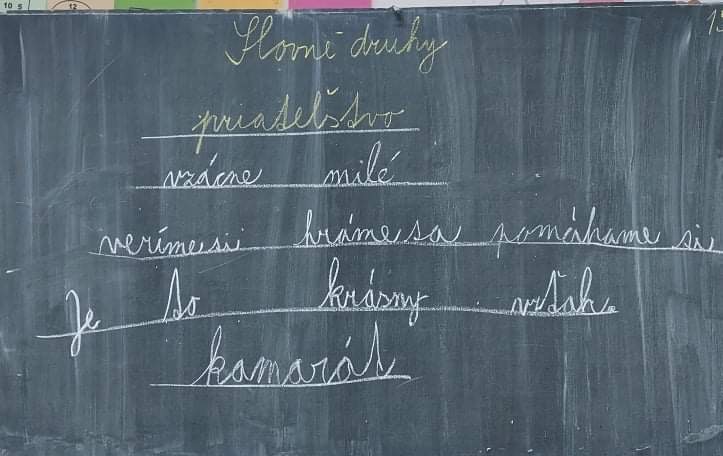 10 5 12
Slovné druhy
priatelstvo
vzácne milé
veríme si hráme sa pomáhame si
Je to krásny vzťah.
kamarát